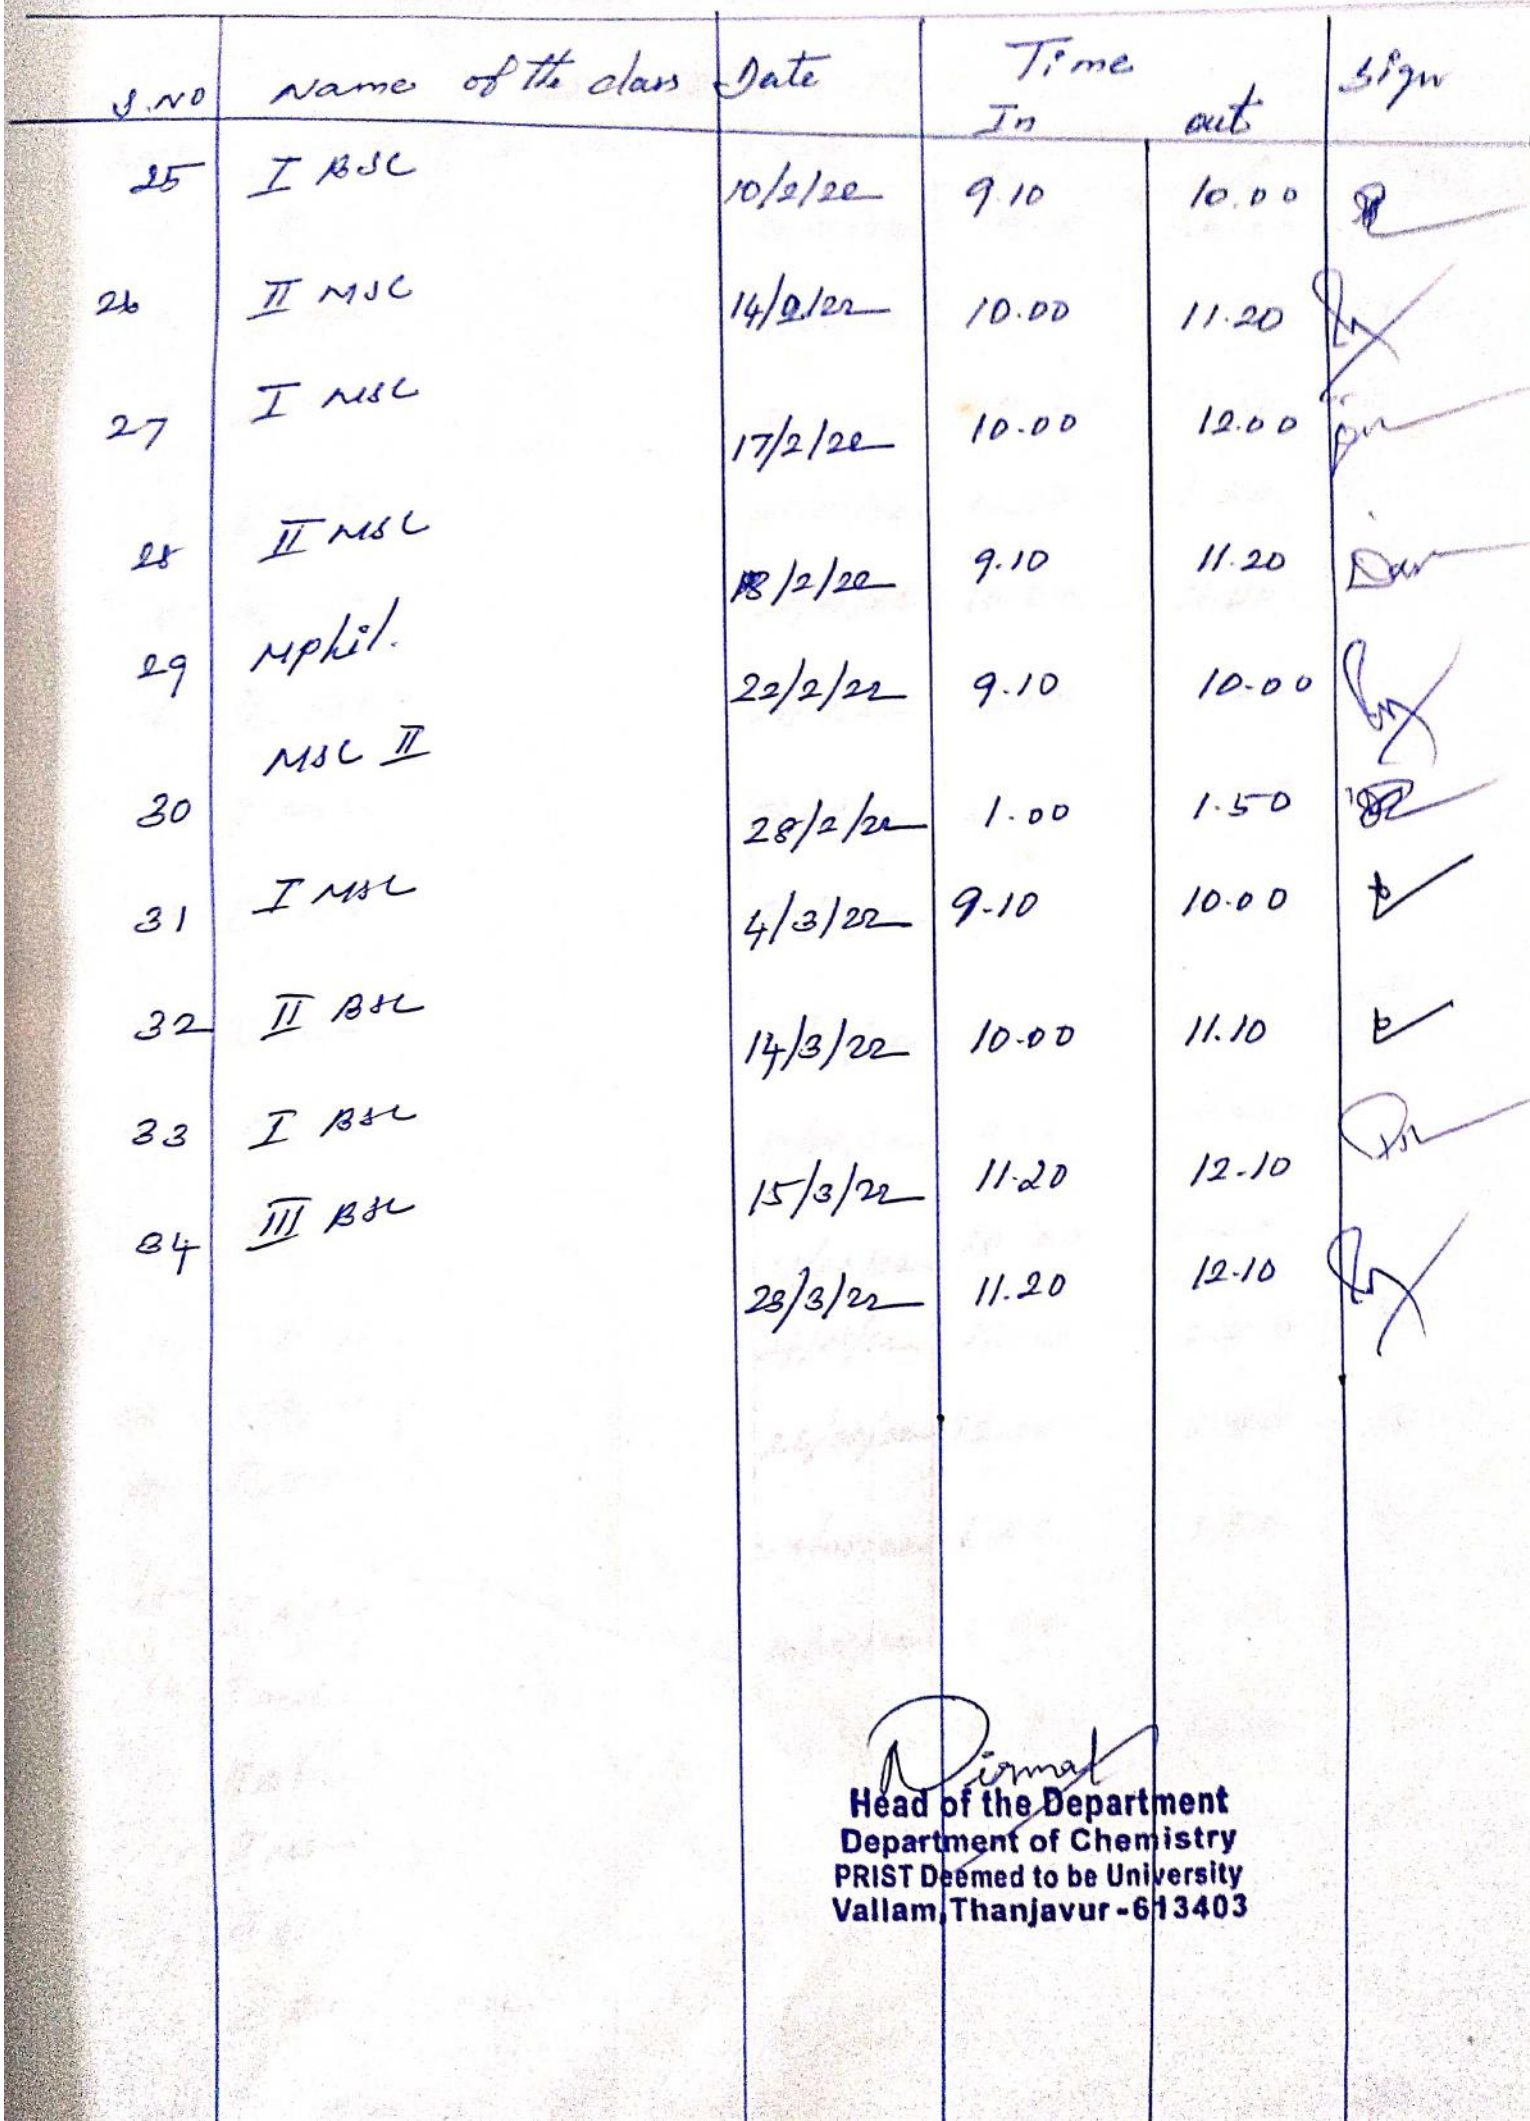 S.NO Name of the class Date Time Sign
In out
25 I BSC 10/2/22 9.10 10.00
26 II MSC 14/2/22 10.00 11.20
27 I MSC 17/2/22 10.00 12.00
28 II MSC 18/2/22 9.10 11.20
29 Mphil. 22/2/22 9.10 10.00
30 MSC II 28/2/22 1.00 1.50
31 I MSC 4/3/22 9.10 10.00
32 II BSC 14/3/22 10.00 11.10
33 I BSC 15/3/22 11.20 12.10
34 III BSC 11.20 12.10
Head of the Department
Department of Chemistry
PRIST Deemed to be University
Vallam, Thanjavur - 613403